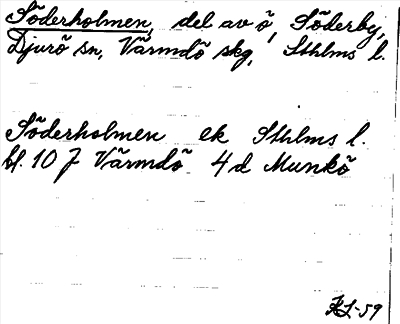 Söderholmen, del av ö, Söderby,
Djurö sn, Värmdö skg, Sthlms l.
Söderholmen ek Sthlms l.
bl. 10 J Värmdö 4 d Munkö
-59